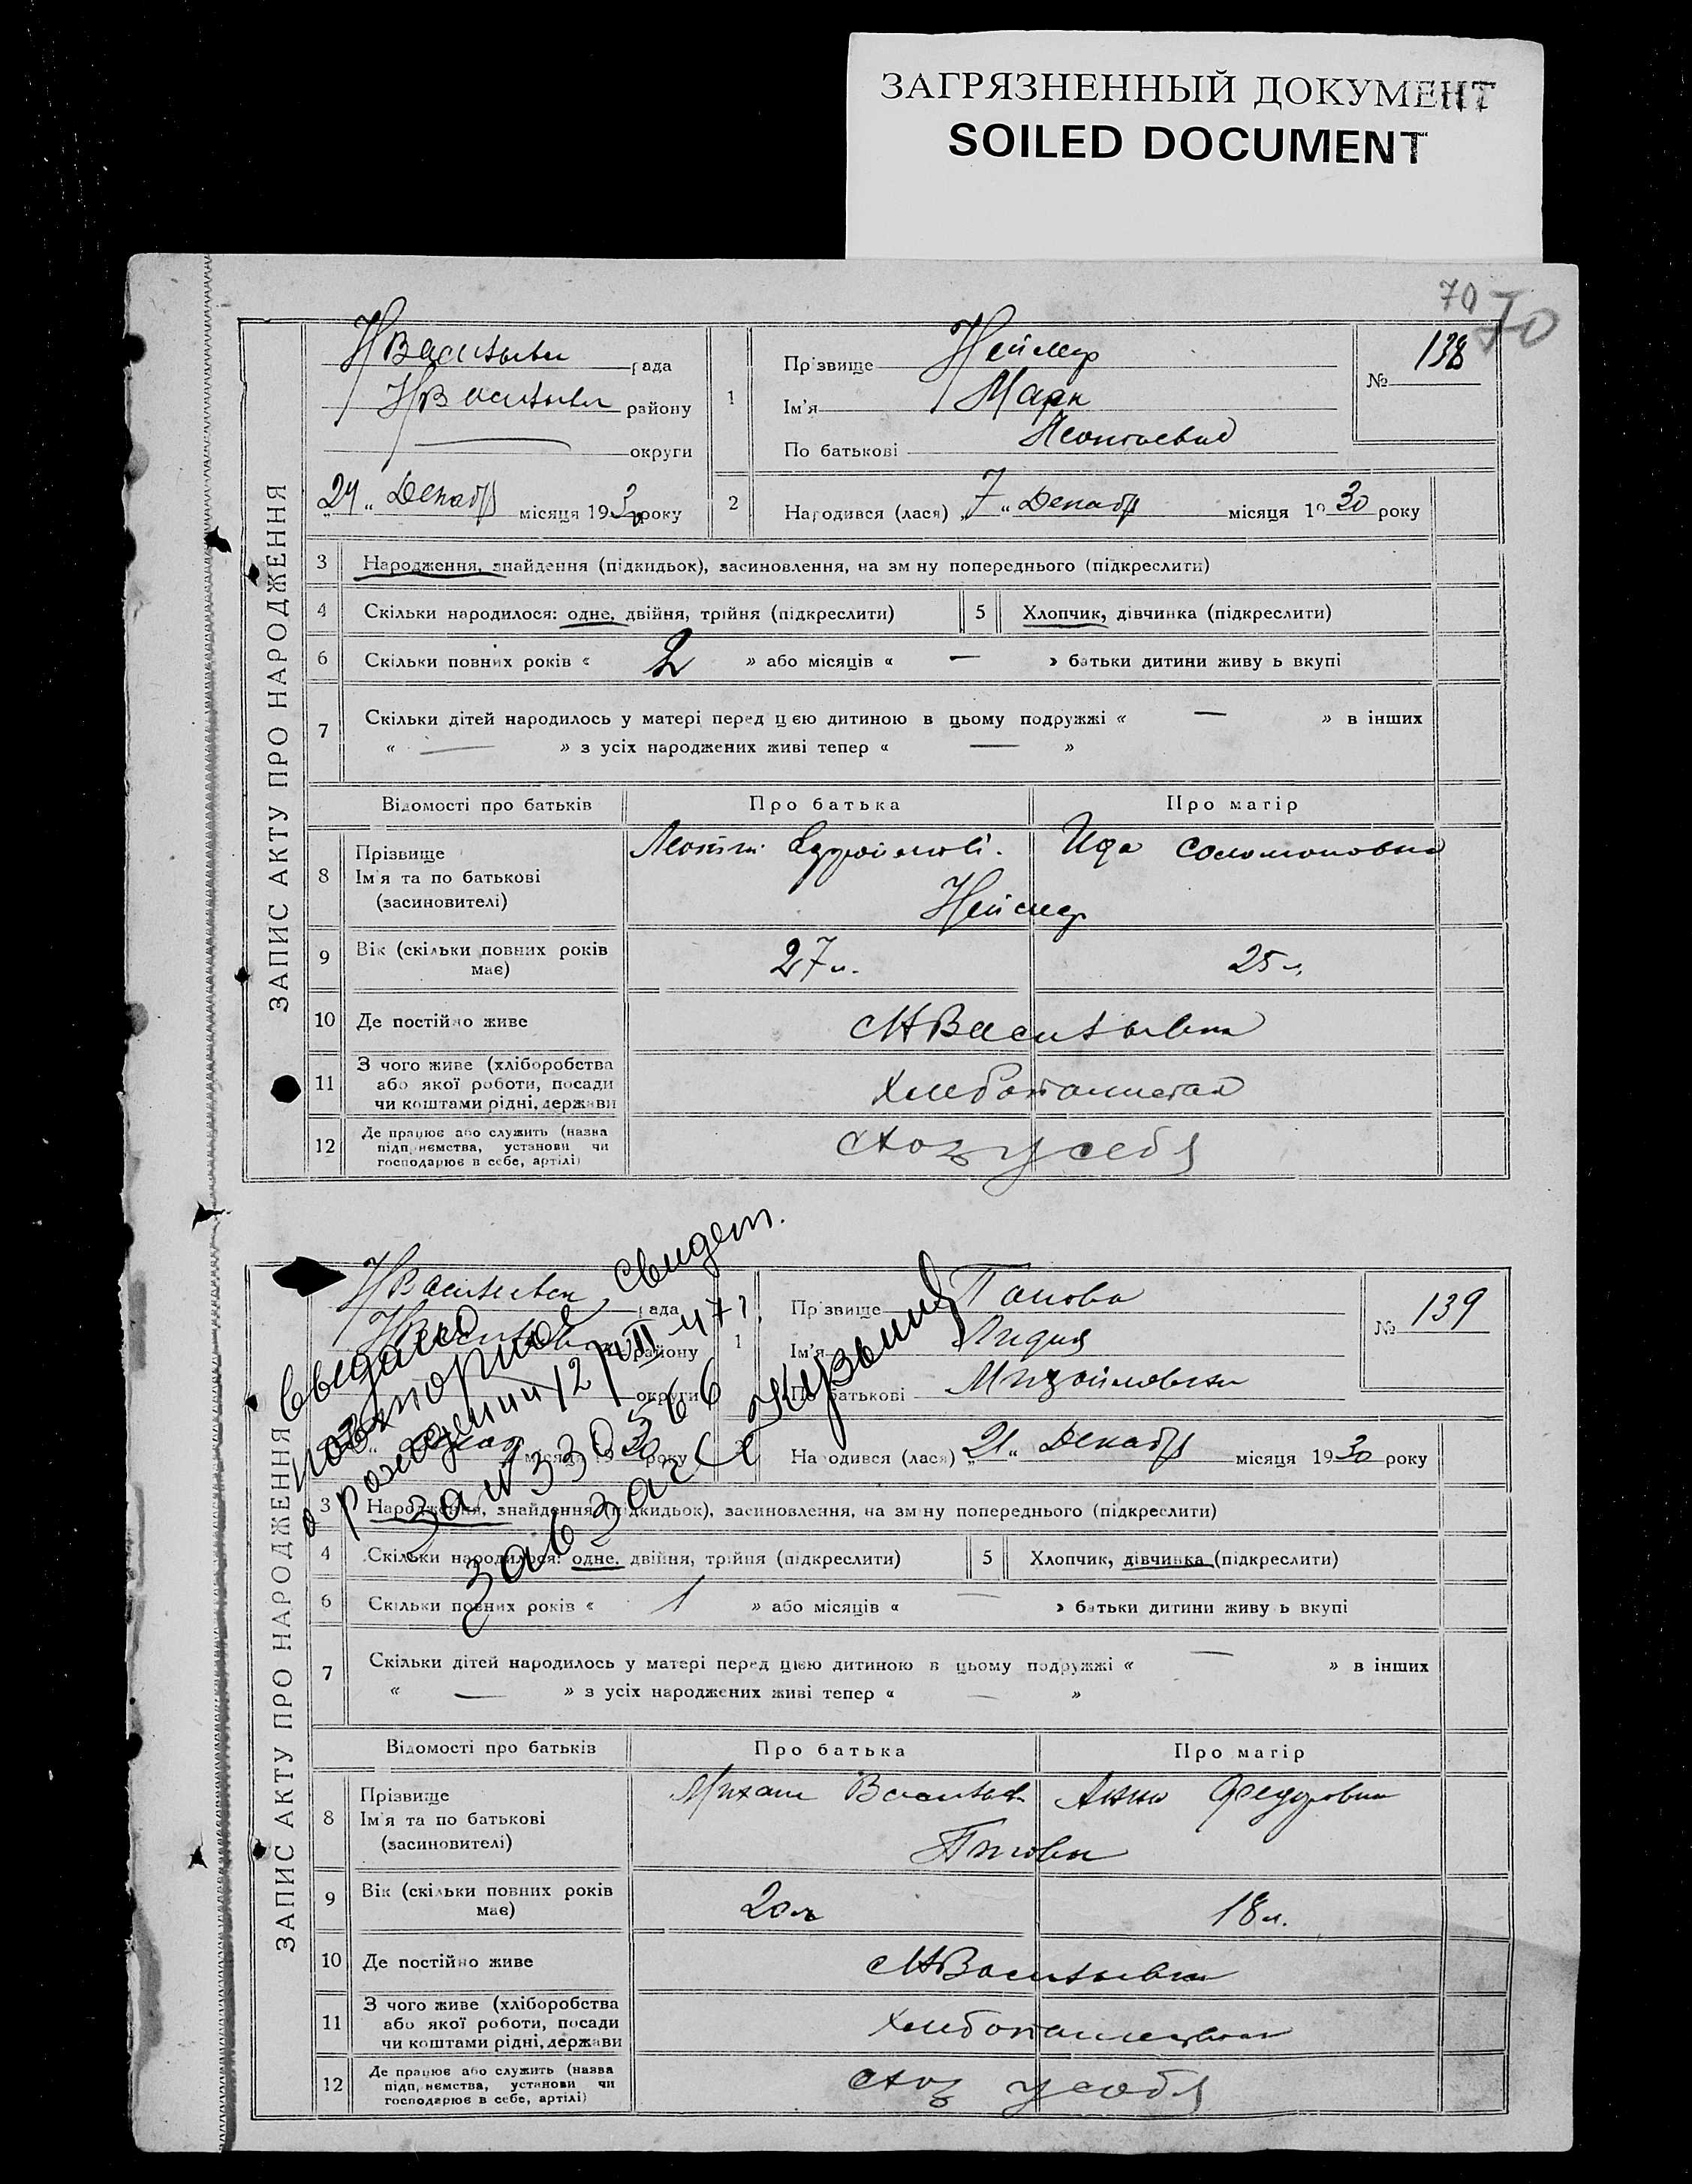 ЗАГРЯЗНЕННЫЙ ДОКУМЕНТ
SOILED DOCUMENT
70 70
ЗАПИС АКТУ ПРО НАРОДЖЕННЯ
НВасильевк рада
НВасильевк району
округи
1
Прізвище Неймер
Ім'я Марк
По батькові Леонтьевич
№ 138
24 „ Декабр місяця 1930 року
2 Народився (лася) „ 7 “ Декабр місяця 1930 року
3 Народження, знайдення (підкидьок), засиновлення, на зміну попереднього (підкреслити)
4 Скільки народилося: одне, двійня, трійня (підкреслити) 5 Хлопчик, дівчинка (підкреслити)
6 Скільки повних років « 2 » або місяців « — » батьки дитини живуть вкупі
7 Скільки дітей народилось у матері перед цією дитиною в цьому подружжі « — » в інших
« — » з усіх народжених живі тепер « — »
Відомості про батьків Про батька Про матір
8 Прізвище
Ім'я та по батькові
(засиновителі)
Ида Соломоновна
Неймер
9 Вік (скільки повних років має) 27 л. 25 л.
10 Де постійно живе НВасильевка
11 З чого живе (хліборобства
або якої роботи, посади
чи коштами рідні, держави
12 Де працює або служить (назва
підприємства, установи чи
господарює в себе, артілі)
у себя
ЗАПИС АКТУ ПРО НАРОДЖЕННЯ
НВасильевк рада
району
округи
1
Прізвище Попова
Ім'я Лидия
По батькові Михайловна
№ 139
місяця 1930 року
Народився (лася) „ 21 “ Декабр місяця 1930 року
Выдано
повторное свидет.
о рождении 12/VII 47 г.
за № 330566
зав загс Кузьмин
3 Народження, знайдення (підкидьок), засиновлення, на зміну попереднього (підкреслити)
4 Скільки народилося: одне, двійня, трійня (підкреслити) 5 Хлопчик, дівчинка (підкреслити)
6 Скільки повних років « 1 » або місяців « — » батьки дитини живуть вкупі
7 Скільки дітей народилось у матері перед цією дитиною в цьому подружжі « — » в інших
« — » з усіх народжених живі тепер « — »
Відомості про батьків Про батька Про матір
8 Прізвище
Ім'я та по батькові
(засиновителі)
Михаил Васильев Анна Федоровна
Поповы
9 Вік (скільки повних років має) 20 л 18 л.
10 Де постійно живе НВасильевка
11 З чого живе (хліборобства
або якої роботи, посади
чи коштами рідні, держави
12 Де працює або служить (назва
підприємства, установи чи
господарює в себе, артілі)
у себя